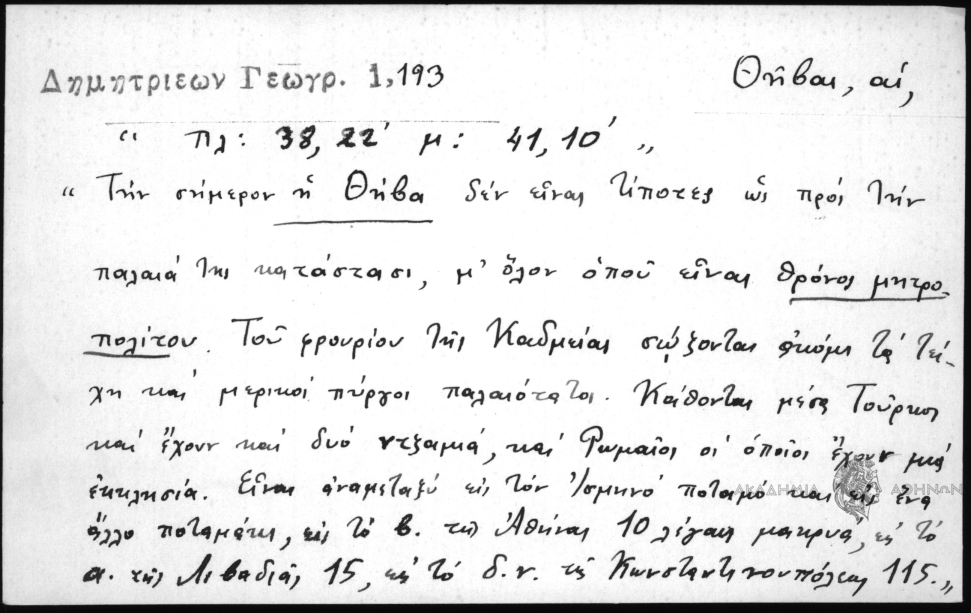 Δημητριεων Γεωγρ. 1, 193
Θῆβαι, αἱ,
“ πλ: 38, 22′ μ: 41, 10′ „
“ Τὴν σήμερον ἡ Θήβα δέν εἶναι τίποτες ὡς πρός τήν
παλαιά της κατάστασι, μ' ὅλον ὁποῦ εἶναι θρόνος μητρο-
πολίτου. Τοῦ φρουρίου τῆς Καδμείας σῴζονται ἀκόμι τά τεί-
χη καί μερικοί πύργοι παλαιότατοι. Κάθονται μέσα Τοῦρκοι
καί ἔχουν καί δυό ντζαμιά, καί Ρωμαῖοι οἱ ὁποῖοι ἔχουν μιά
ἐκκλησία. Εἶναι ἀναμεταξύ εἰς τόν Ἰσμηνό ποταμό καί εἰς ἕνα
ἄλλο ποταμάκι, εἰς τό β. τῆς Ἀθήνας 10 λίγαις μακρυά, εἰς τό
α. τῆς Λιβαδιᾶς 15, εἰς τό δ.ν. τῆς Κωνσταντινουπόλεως 115. „
ΑΚΑΔΗΜΙΑ ΑΘΗΝΩΝ